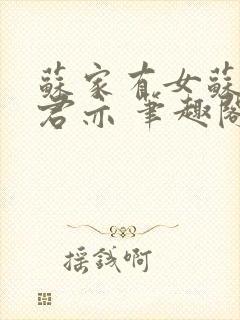 蘇家有女蘇
君亦 筆趣閣
搖錢啊